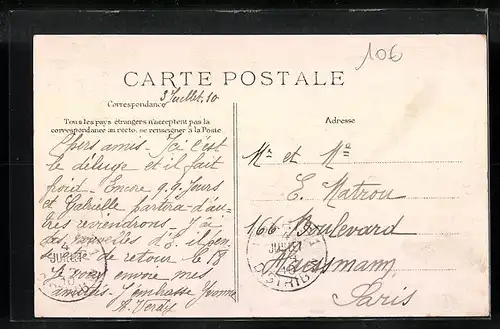 106
CARTE POSTALE
3 Juillet. 10
Correspondance
Tous les pays étrangers n'acceptent pas la
correspondance au recto, se renseigner à la Poste
Adresse
Chers amis. Ici c'est
le déluge et il fait
froid. Encore q.q. jours
et Gabrielle partira d'au-
tres reviendront. J'ai
des nouvelles d'E. il pen-
de retour le 18
Je vous envoie mes
amitiés. J'embrasse Yvonne
A. Verdy
Mr et Me
E. Matrou
166 Boulevard
Haussmann
Paris
JUILLET
DISTRIB
JUILLET